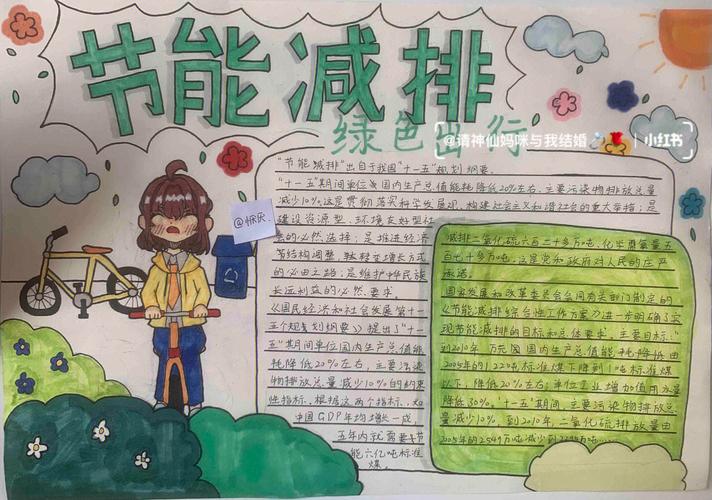 节能减排
绿色出行
@请神仙妈咪与我结婚
小红书
"节能减排"出自于我国"十一五"规划纲要。
"十一五"期间单位国内生产总值能耗降低20%左右、主要污染物排放总量
减少10%。这是贯彻落实科学发展观、构建社会主义和谐社会的重大举措;是
建设资源型、环境友好型社
会的必然选择;是推进经济
节结构调整,转变增长方式
的必由之路;是维护中华民族
长远利益的必然要求。
《国民经济和社会发展第十一
五个规划纲要》提出了"十一
五"期间单位国内生产总值能
耗降低20%左右,主要污染
物排放总量减少10%的约束
性指标。根据这两个指标,如
中国GDP年均增长一成,
五年内就需要节
能六亿吨标准
煤。
@恹恹.
减排二氧化硫六百二十多万吨、化学需氧量五
百七十多万吨;这是党和政府对人民的庄严
承诺。
国家发展和改革委员会会同有关部门制定的
《节能减排综合性工作方案》进一步明确了实
现节能减排的目标和总体要求。主要目标:"
到2010年,万元国内生产总值能耗降低由
2005年的1.22吨标准煤下降到1吨标准煤
以下,降低20%左右;单位工业增加值用水量
降低30%。"十一五"期间,主要污染物排放总
量减少10%,到2010年,二氧化硫排放量由
2005年的2549万吨减少到2295万吨……